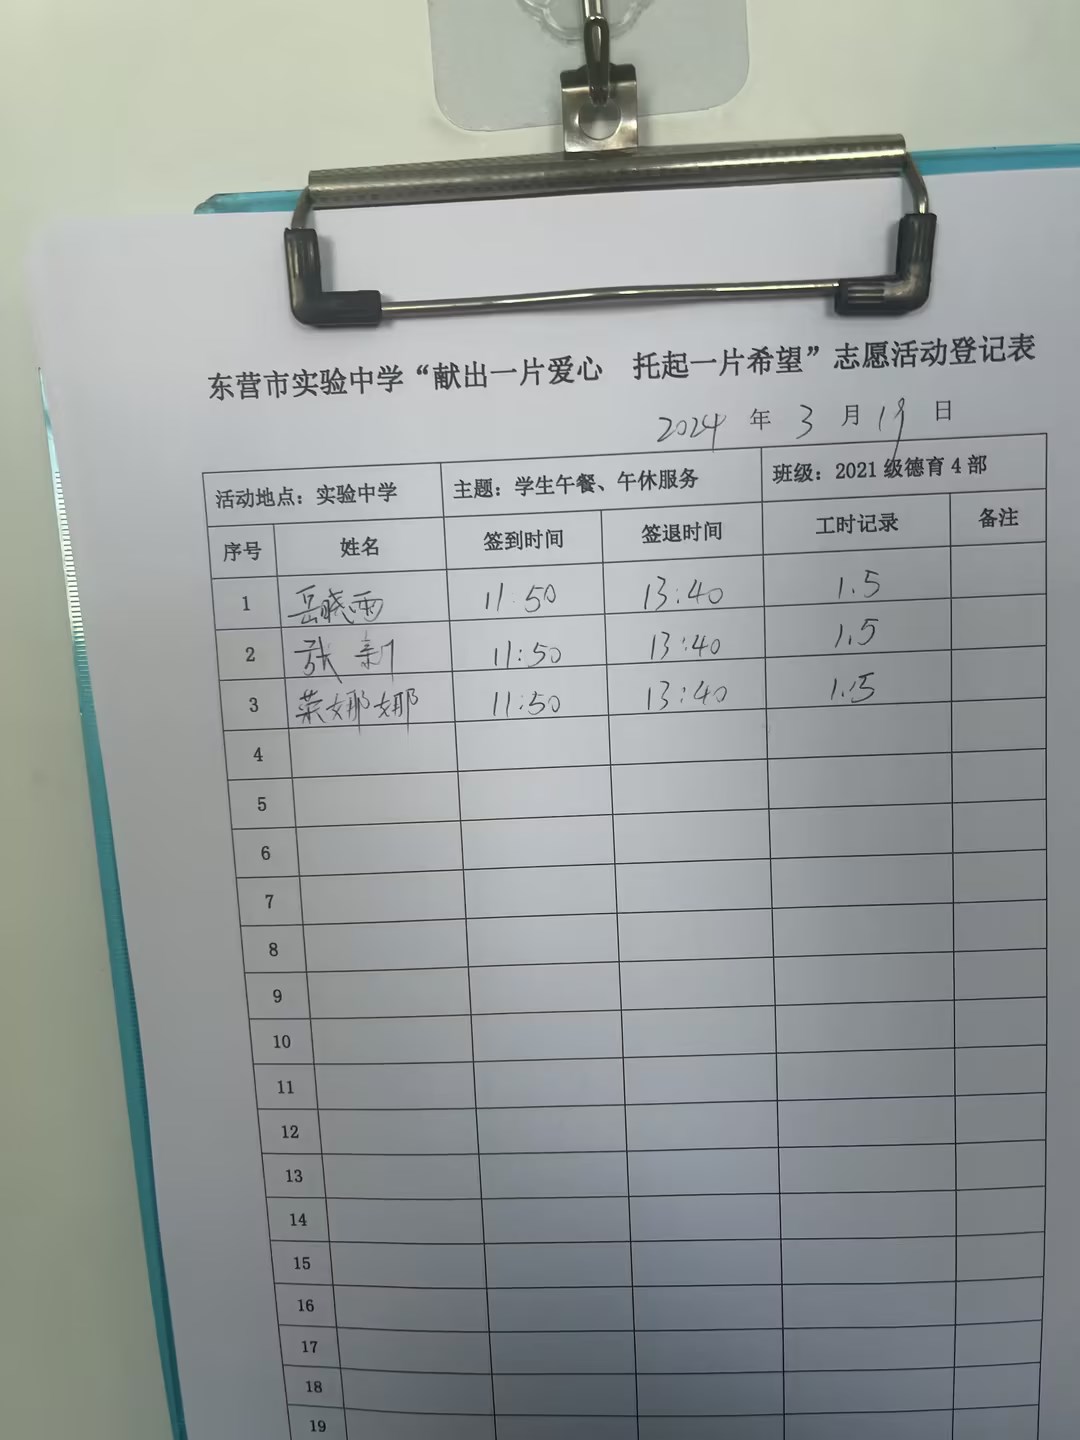 东营市实验中学“献出一片爱心 托起一片希望”志愿活动登记表
2024 年 3 月 19 日
活动地点：实验中学 主题：学生午餐、午休服务 班级：2021级德育4部
序号 姓名 签到时间 签退时间 工时记录 备注
1 岳晓雨 11:50 13:40 1.5
2 张新 11:50 13:40 1.5
3 荣娜娜 11:50 13:40 1.5
4
5
6
7
8
9
10
11
12
13
14
15
16
17
18
19